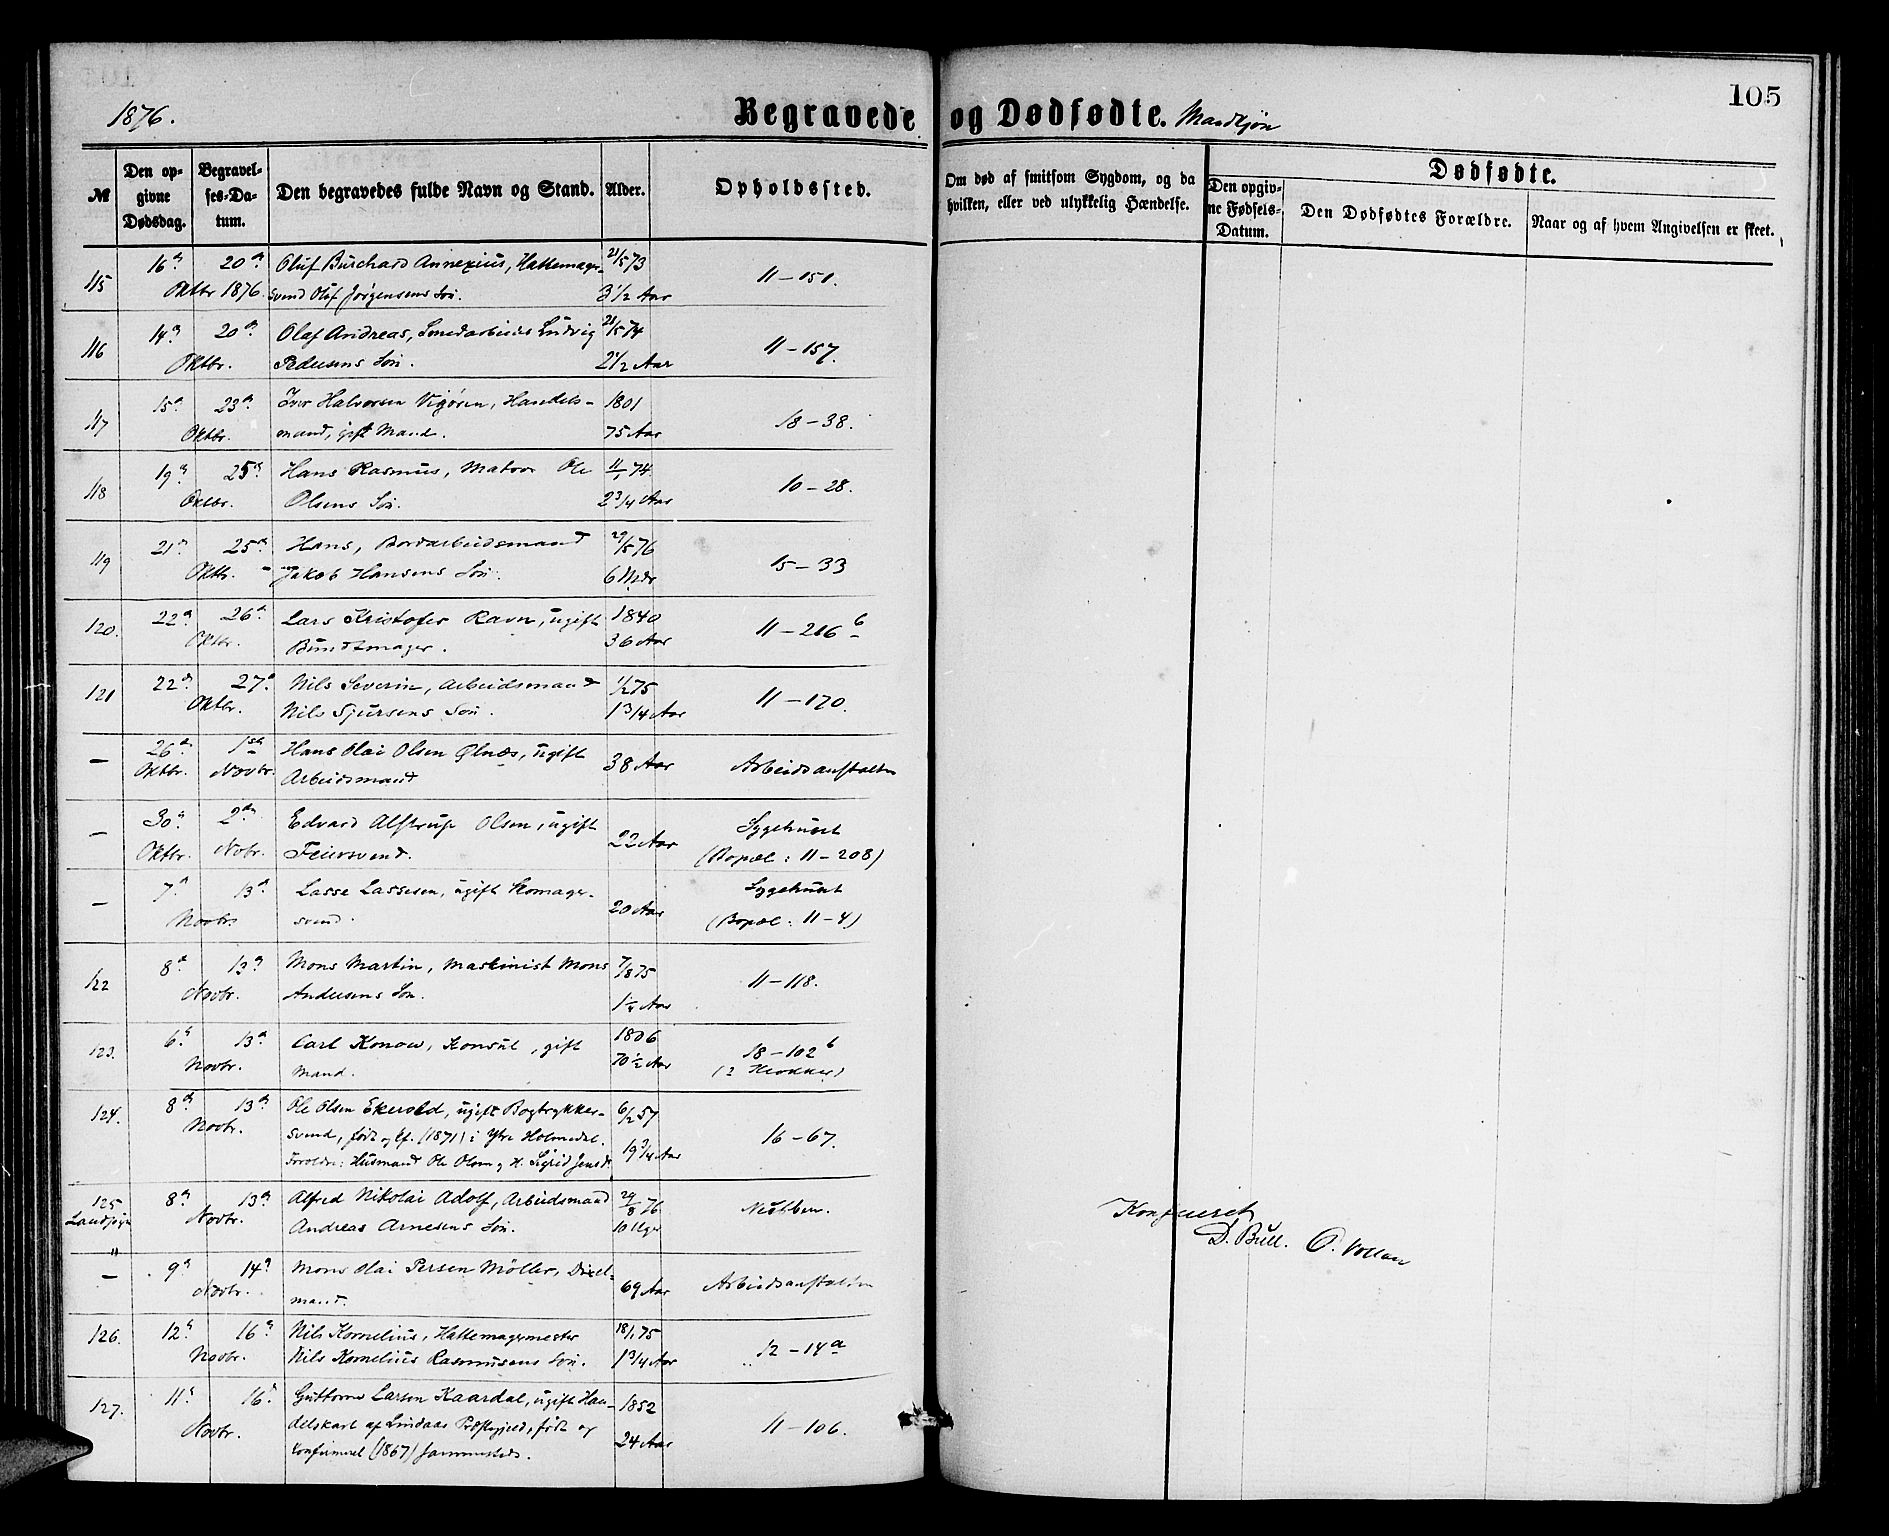 105
1876.
Begravede og Dødfødte. Mandkjøn
№
Den opgivne Dødsdag.
Begravelses-Datum.
Den begravedes fulde Navn og Stand.
Alder.
Opholdssted.
Om død af smitsom Sygdom, og da hvilken, eller ved ulykkelig Hændelse.
Dødfødte.
Den opgivne Fødsels-Datum.
Den Dødfødtes Forældre.
Naar og af hvem Angivelsen er skeet.
115 16de 20de Oluf Burchard Annexius, Hattemager- 21/5 73
Oktbr 1876. svend Oluf Jørgensens Søn. 3 1/2 Aar 11 – 151.
116 14de 20de Olaf Andreas, Ludvig 21/5 74
Oktbr. Pedersens Søn. 2 1/2 Aar 11 – 157.
117 15de 23de Iver Halvorsen Vigøren, Handels- 1801
Oktbr. mand, gift Mand. 75 Aar 18 – 38.
118 19de 25de Hans Rasmus, Matros Ole 11/1 74
Oktbr. Olsens Søn. 2 3/4 Aar 10 – 28.
119 21de 25de Hans, Bordarbeidsmand 29/5 76
Oktbr. Jakob Hansens Søn. 6 Mdr 15 – 33
120. 22de 26de Lars Kristofer Ravn, ugift 1840
Oktbr. Buntmager. 36 Aar 11 – 216 b
121 22de 27de Nils Severin, Arbeidsmand 1/2 75
Oktbr. Nils Sjursens Søn. 1 3/4 Aar 11 – 170.
– 26de 1ste Hans Olai Olsen Ølnæs, ugift
Oktbr. Novbr. Arbeidsmand 38 Aar Arbeidsanstalten
– 30de 2den Edvard Alstrup Olsen, ugift Sygehuset
Oktbr. Nobr. Feiersvend. 22 Aar (Bopæl: 11 – 208)
– 7de 13de Lasse Lassesen, ugift Skomager- Sygehuset
Novbr. svend. 20 Aar (Bopæl: 11 – 4)
122 8de 13de Mons Martin, Maskinist Mons 7/8 75
Novbr. Andersens Søn. 1 1/4 Aar 11 – 118.
123. 6te 13de Carl Konow, Konsul, gift 1806 18 – 102 b
Novbr. Mand. 70 1/2 Aar (2 Klokker)
124. 8de 13de Ole Olsen Ekerold, ugift Bogtrykker- 6/2 57
Novbr. svend, født og Cf. (1871) i Ytre Holmedal. 16 – 67.
Forældre: Husmand Ole Olsen og H. Sigrid Jensd. 19 3/4 Aar
125 8de 13de Alfred Nikolai Adolf, Arbeidsmand 29/8 76
Landsogn Novbr. Andreas Arnesens Søn. 10 Uger Møhlen.
– 9de 14de Mons Olai Persen Möller,
Novbr. mand. 69 Aar Arbeidsanstalten
126. 12te 16de Nils Kornelius, Hattemagermester 18/1 75
Novbr. Nils Kornelius Rasmusens Søn. 1 3/4 Aar 12 – 14 a
127. 11te 16de Guttorm Larsen Kaardal, ugift Han- 1852
Novbr. delskarl af Lindaas Præstegjeld, født og 11 – 106.
konfirmeret (1867) sammesteds. 24 Aar
Konfereret
D. Bull. O. Vollan